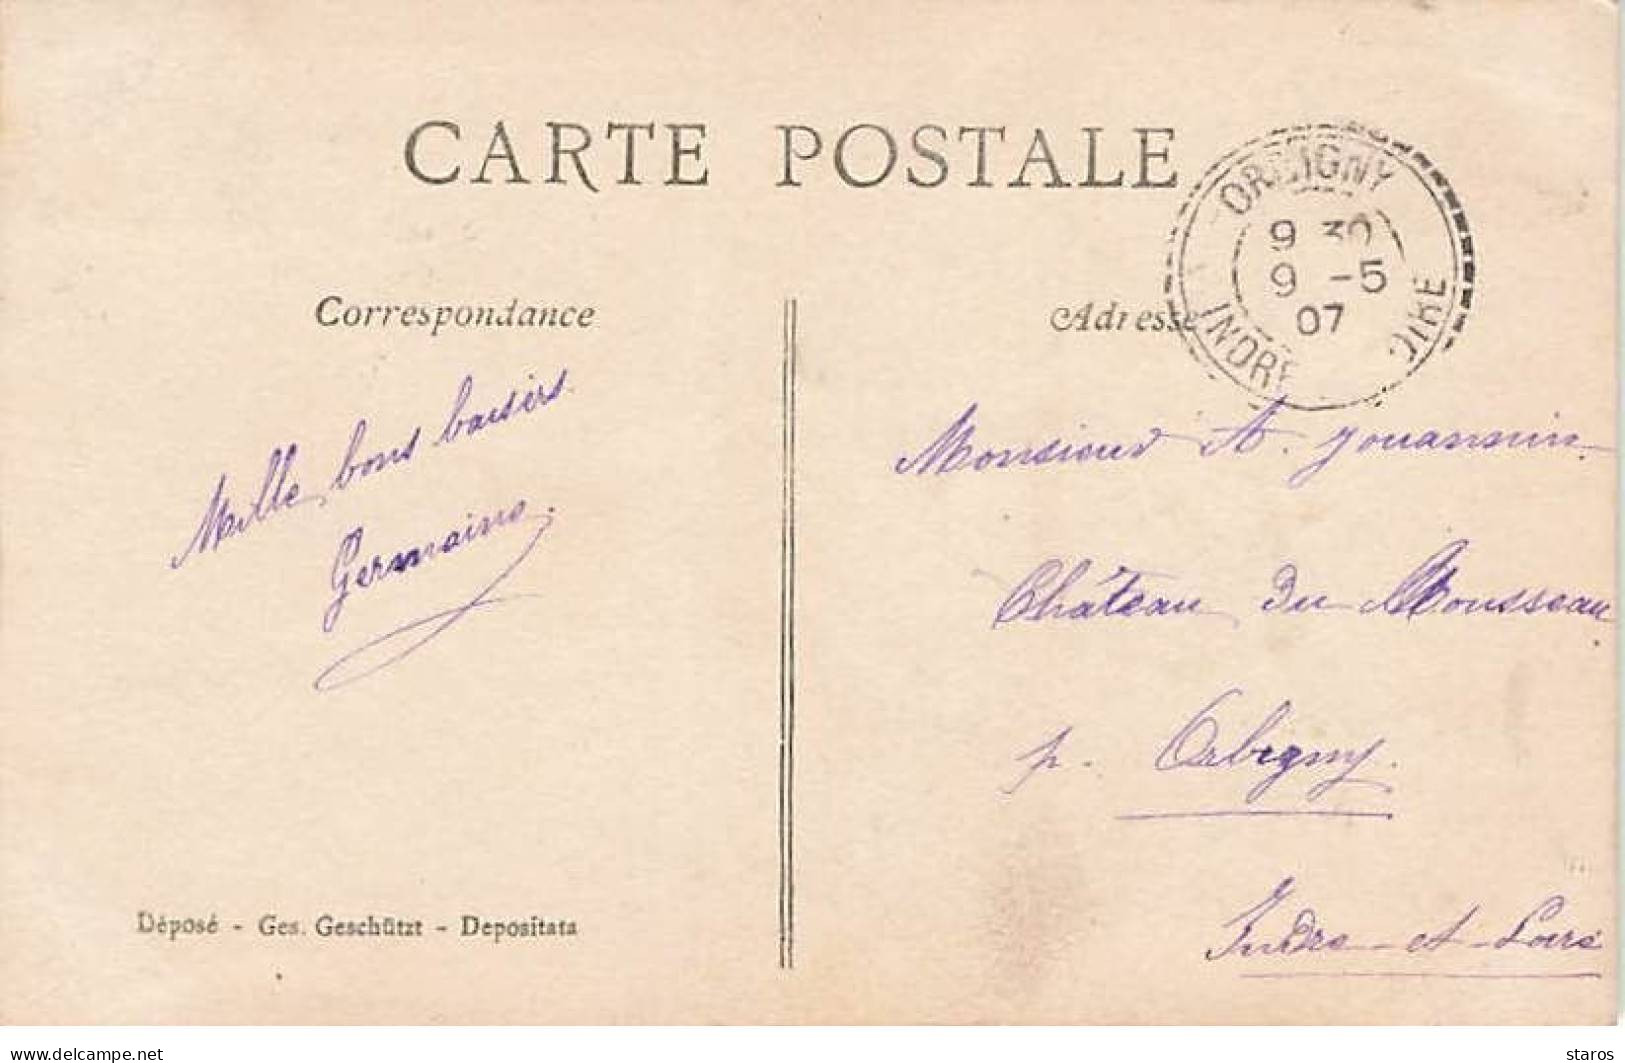 CARTE POSTALE
ORBIGNY
9 30
9 -5
07
INDRE
Correspondance
Adresse
Mille bons baisers
Germaine.
Monsieur A. Jouannin
Château du Mousseau
p. Orbigny.
Indre-et-Loire
Déposé - Ges. Geschützt - Depositata
www.delcampe.net
staros